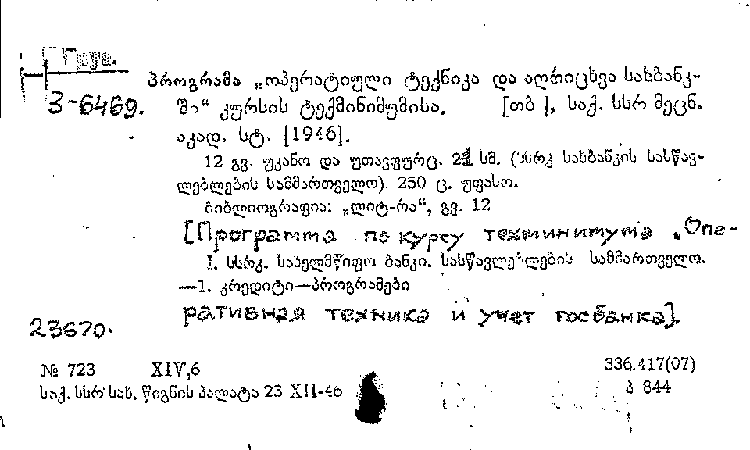 Груз.
პროგრამა „ოპერატიული ტექნიკა და აღრიცხვა სახბანკ-
3-6469.
ში“ კურსის ტექმინიმუმისა. [თბ], საქ. სსრ მეცნ.
აკად. სტ. [1946].
12 გვ. უკანო და უთავფურც. 21 სმ. (სსრკ სახბანკის სასწავ-
ლებლების სამმართველო). 250 ც. უფასო.
ბიბლიოგრაფია: „ლიტ-რა“, გვ. 12
[Программа по курсу техминимума „Опе-
I. სსრკ. სახელმწიფო ბანკი. სასწავლებლების სამმართველო.
—1. კრედიტი—პროგრამები
ративная техника и учет госбанка].
23670.
№ 723 XIV,6 336.417(07)
საქ. სსრ სახ. წიგნის პალატა 23 XII-46 პ 844